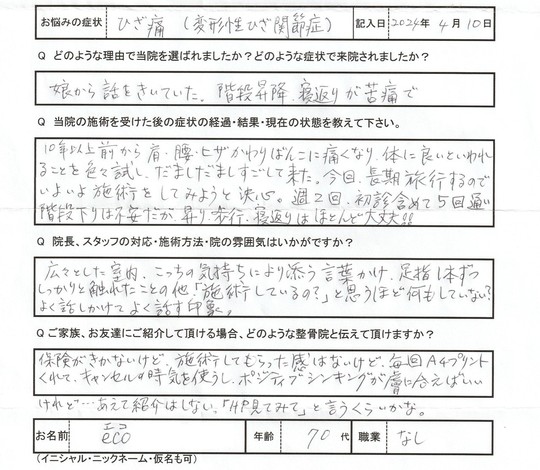 お悩みの症状 ひざ痛 (変形性ひざ関節症) 記入日 2024年 4月 10日
Q どのような理由で当院を選ばれましたか?どのような症状で来院されましたか?
娘から話をきいていた。階段昇降、寝返りが苦痛で
Q 当院の施術を受けた後の症状の経過・結果・現在の状態を教えて下さい。
10年以上前から肩・腰・ヒザかわりばんこに痛くなり、体に良いといわれ
ることを色々試し、だましだましすごして来た。今回、長期旅行するので
いよいよ施術をしてみようと決心。週2回、初診含めて5回通い
階段下りは不安だが、昇り、歩行、寝返りはほとんど大丈夫!!
Q 院長、スタッフの対応・施術方法・院の雰囲気はいかがですか?
広々とした室内、こっちの気持ちにより添う言葉かけ、足指1本ずつ
しっかりと触れたことの他「施術しているの?」と思うほど何もしていない?
よく話しかけてよく話す印象。
Q ご家族、お友達にご紹介して頂ける場合、どのような整骨院と伝えて頂けますか?
保険がきかないけど、施術してもらった感はないけど、毎回A4プリント
くれて、キャンセルの時気を使うし、ポジティブシンキングが膚に合えばいい
けれど…あえて紹介はしない。「HP見てみて」と言うくらいかな。
お名前 eco エコ 年齢 70代 職業 なし
(イニシャル・ニックネーム・仮名も可)